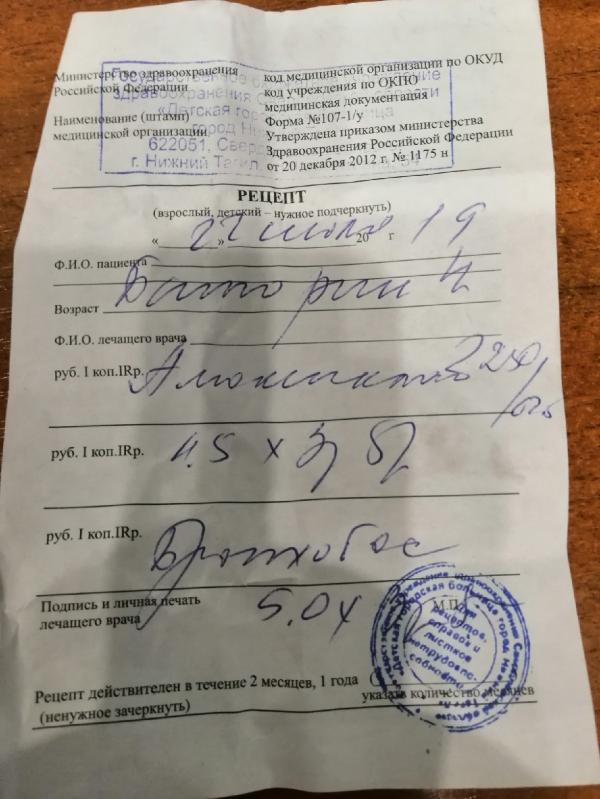 Министерство здравоохранения
Российской Федерации
Наименование (штамп)
медицинской организации
код медицинской организации по ОКУД
код учреждения по ОКПО
медицинская документация
Форма №107-1/у
Утверждена приказом министерства
Здравоохранения Российской Федерации
от 20 декабря 2012 г. № 1175 н
Государственное
здравоохранения
«Детская
город
622051,
г. Нижний Тагил,
РЕЦЕПТ
(взрослый, детский – нужное подчеркнуть)
« 22 » июля 20 г 19
Ф.И.О. пациента
Возраст
Ф.И.О. лечащего врача
руб. I коп.IRp.
250
руб. I коп.IRp. 4.5 х
руб. I коп.IRp.
Бронхобос
Подпись и личная печать
лечащего врача
5.0 х
М.П.
Для
рецептов,
справок и
листков
нетрудоспо-
собности
Детская городская больница город
Рецепт действителен в течение 2 месяцев, 1 года
(ненужное зачеркнуть)
указать количество месяцев